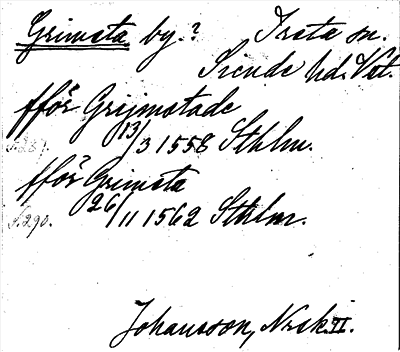 Grimsta by.? Irsta sn.
Siende hd. Vst.
fför Grijmstade
s. 287. 13/3 1558 Sthlm.
fför Grimsta
s. 290. 26/11 1562 Sthlm.
Johansson, Nrsk. II.